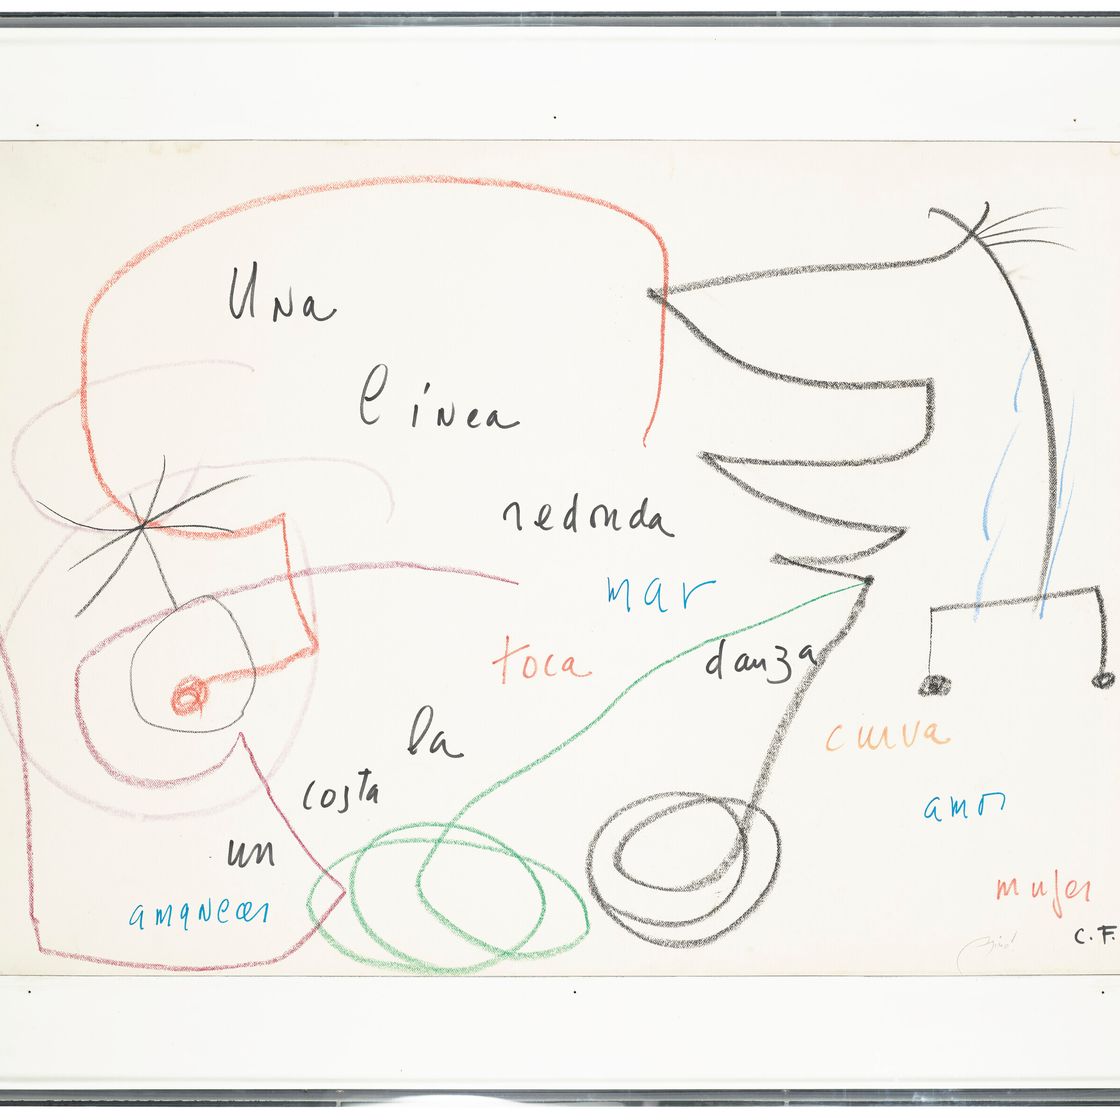 Una
línea
redonda
mar
toca
danza
la
curva
costa
amor
un
mujer
amanecer
C.F.
Miró